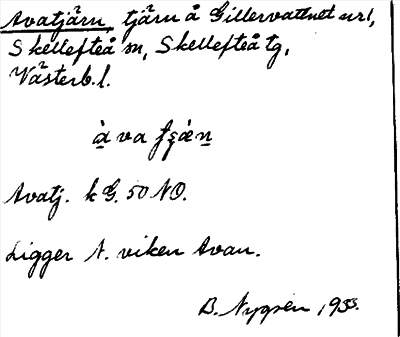 Avatjärn, tjärn å Gillervattnet url,
Skellefteå sn, Skellefteå tg,
Västerb.l.
Avatj. k G. 50 NO.
Ligger N. viken Avan.
B. Nygren, 1933.